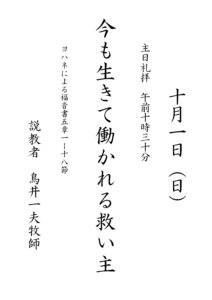 十月一日（日）
主日礼拝　午前十時三十分
今も生きて働かれる救い主
ヨハネによる福音書五章一ー十八節
説教者　鳥井一夫牧師